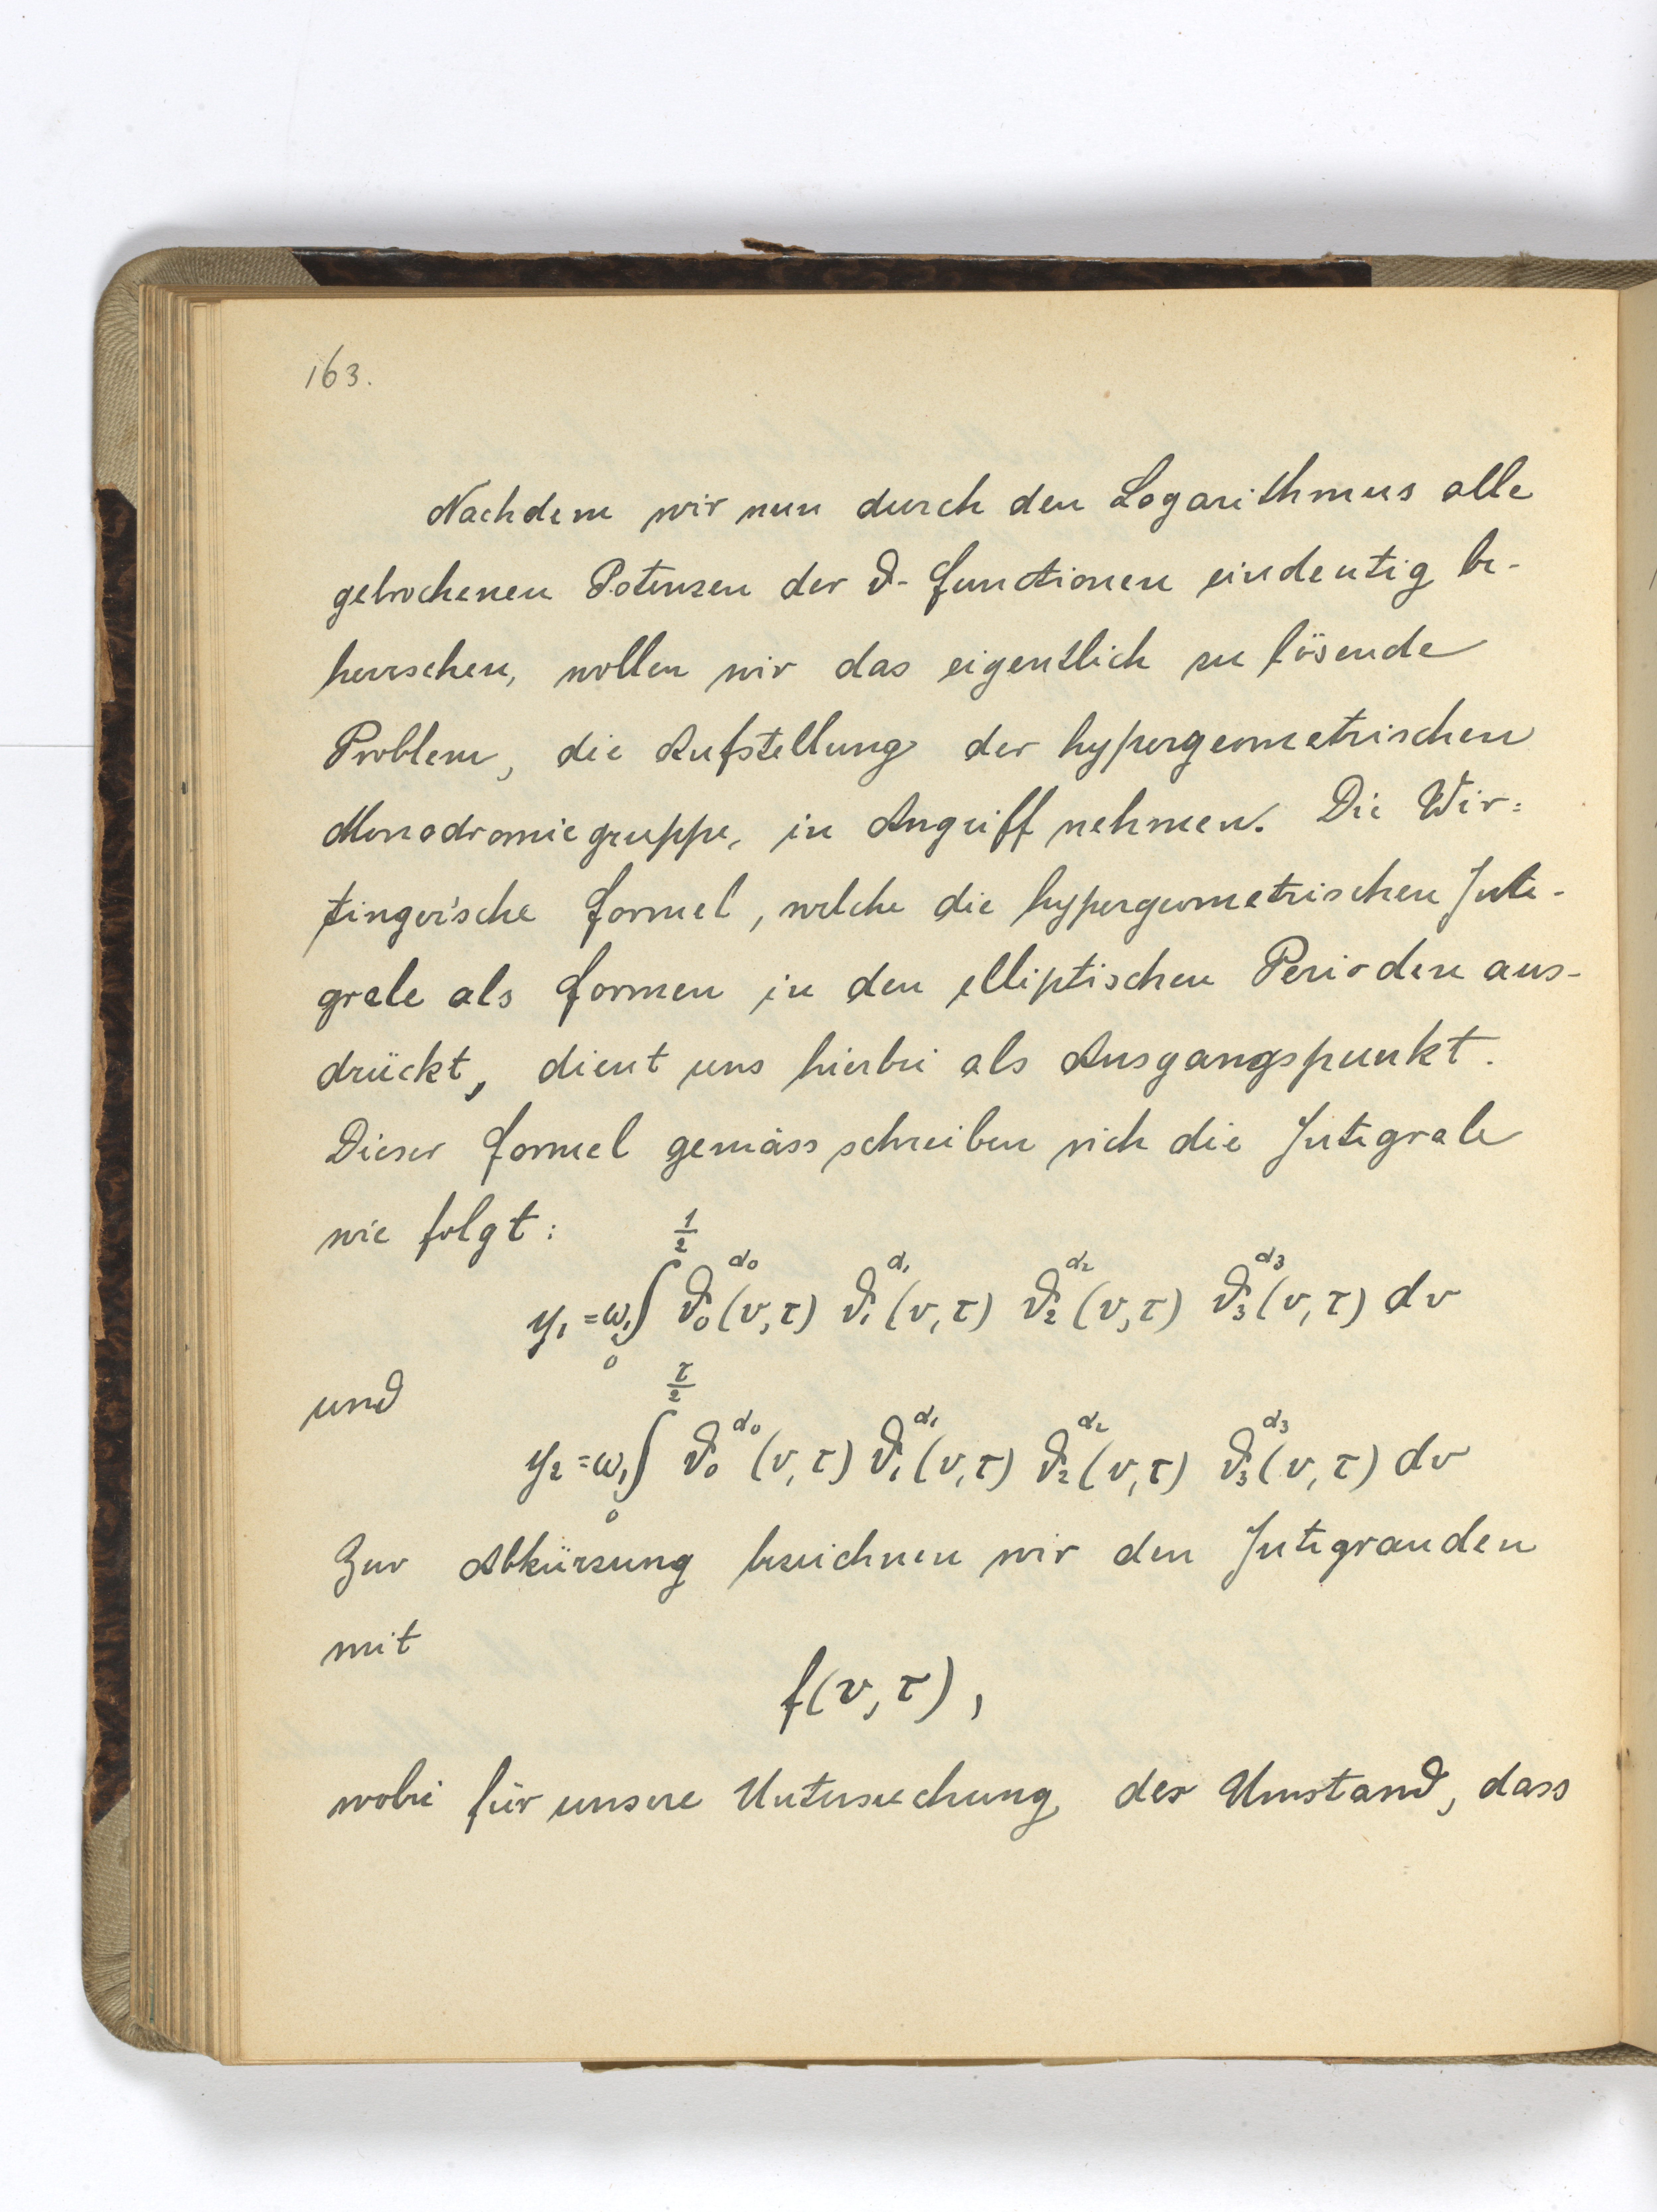 163.
Nachdem wir nun durch den Logarithmus alle
gebrochenen Potenzen der ϑ- Functionen eindeutig be-
herrschen, wollen wir das eigentlich zu lösende
Problem, die Aufstellung der hypergeometrischen
Monodromiegruppe, in Angriff nehmen. Die Wir=
tinger'sche Formel, welche die hypergeometrischen Inte-
grale als Formen in den elliptischen Perioden aus-
drückt, dient uns hierbei als Ausgangspunkt.
Dieser Formel gemäss schreiben sich die Integrale
wie folgt:
y₁ = ω₁ ∫₀^{1/2} ϑ₀^{α₀}(v,τ) ϑ₁^{α₁}(v,τ) ϑ₂^{α₂}(v,τ) ϑ₃^{α₃}(v,τ) dv
und
y₂ = ω₁ ∫₀^{τ/2} ϑ₀^{α₀}(v,τ) ϑ₁^{α₁}(v,τ) ϑ₂^{α₂}(v,τ) ϑ₃^{α₃}(v,τ) dv
Zur Abkürzung bezeichnen wir den Integranden
mit
f(v,τ),
wobei für unsere Untersuchung der Umstand, dass